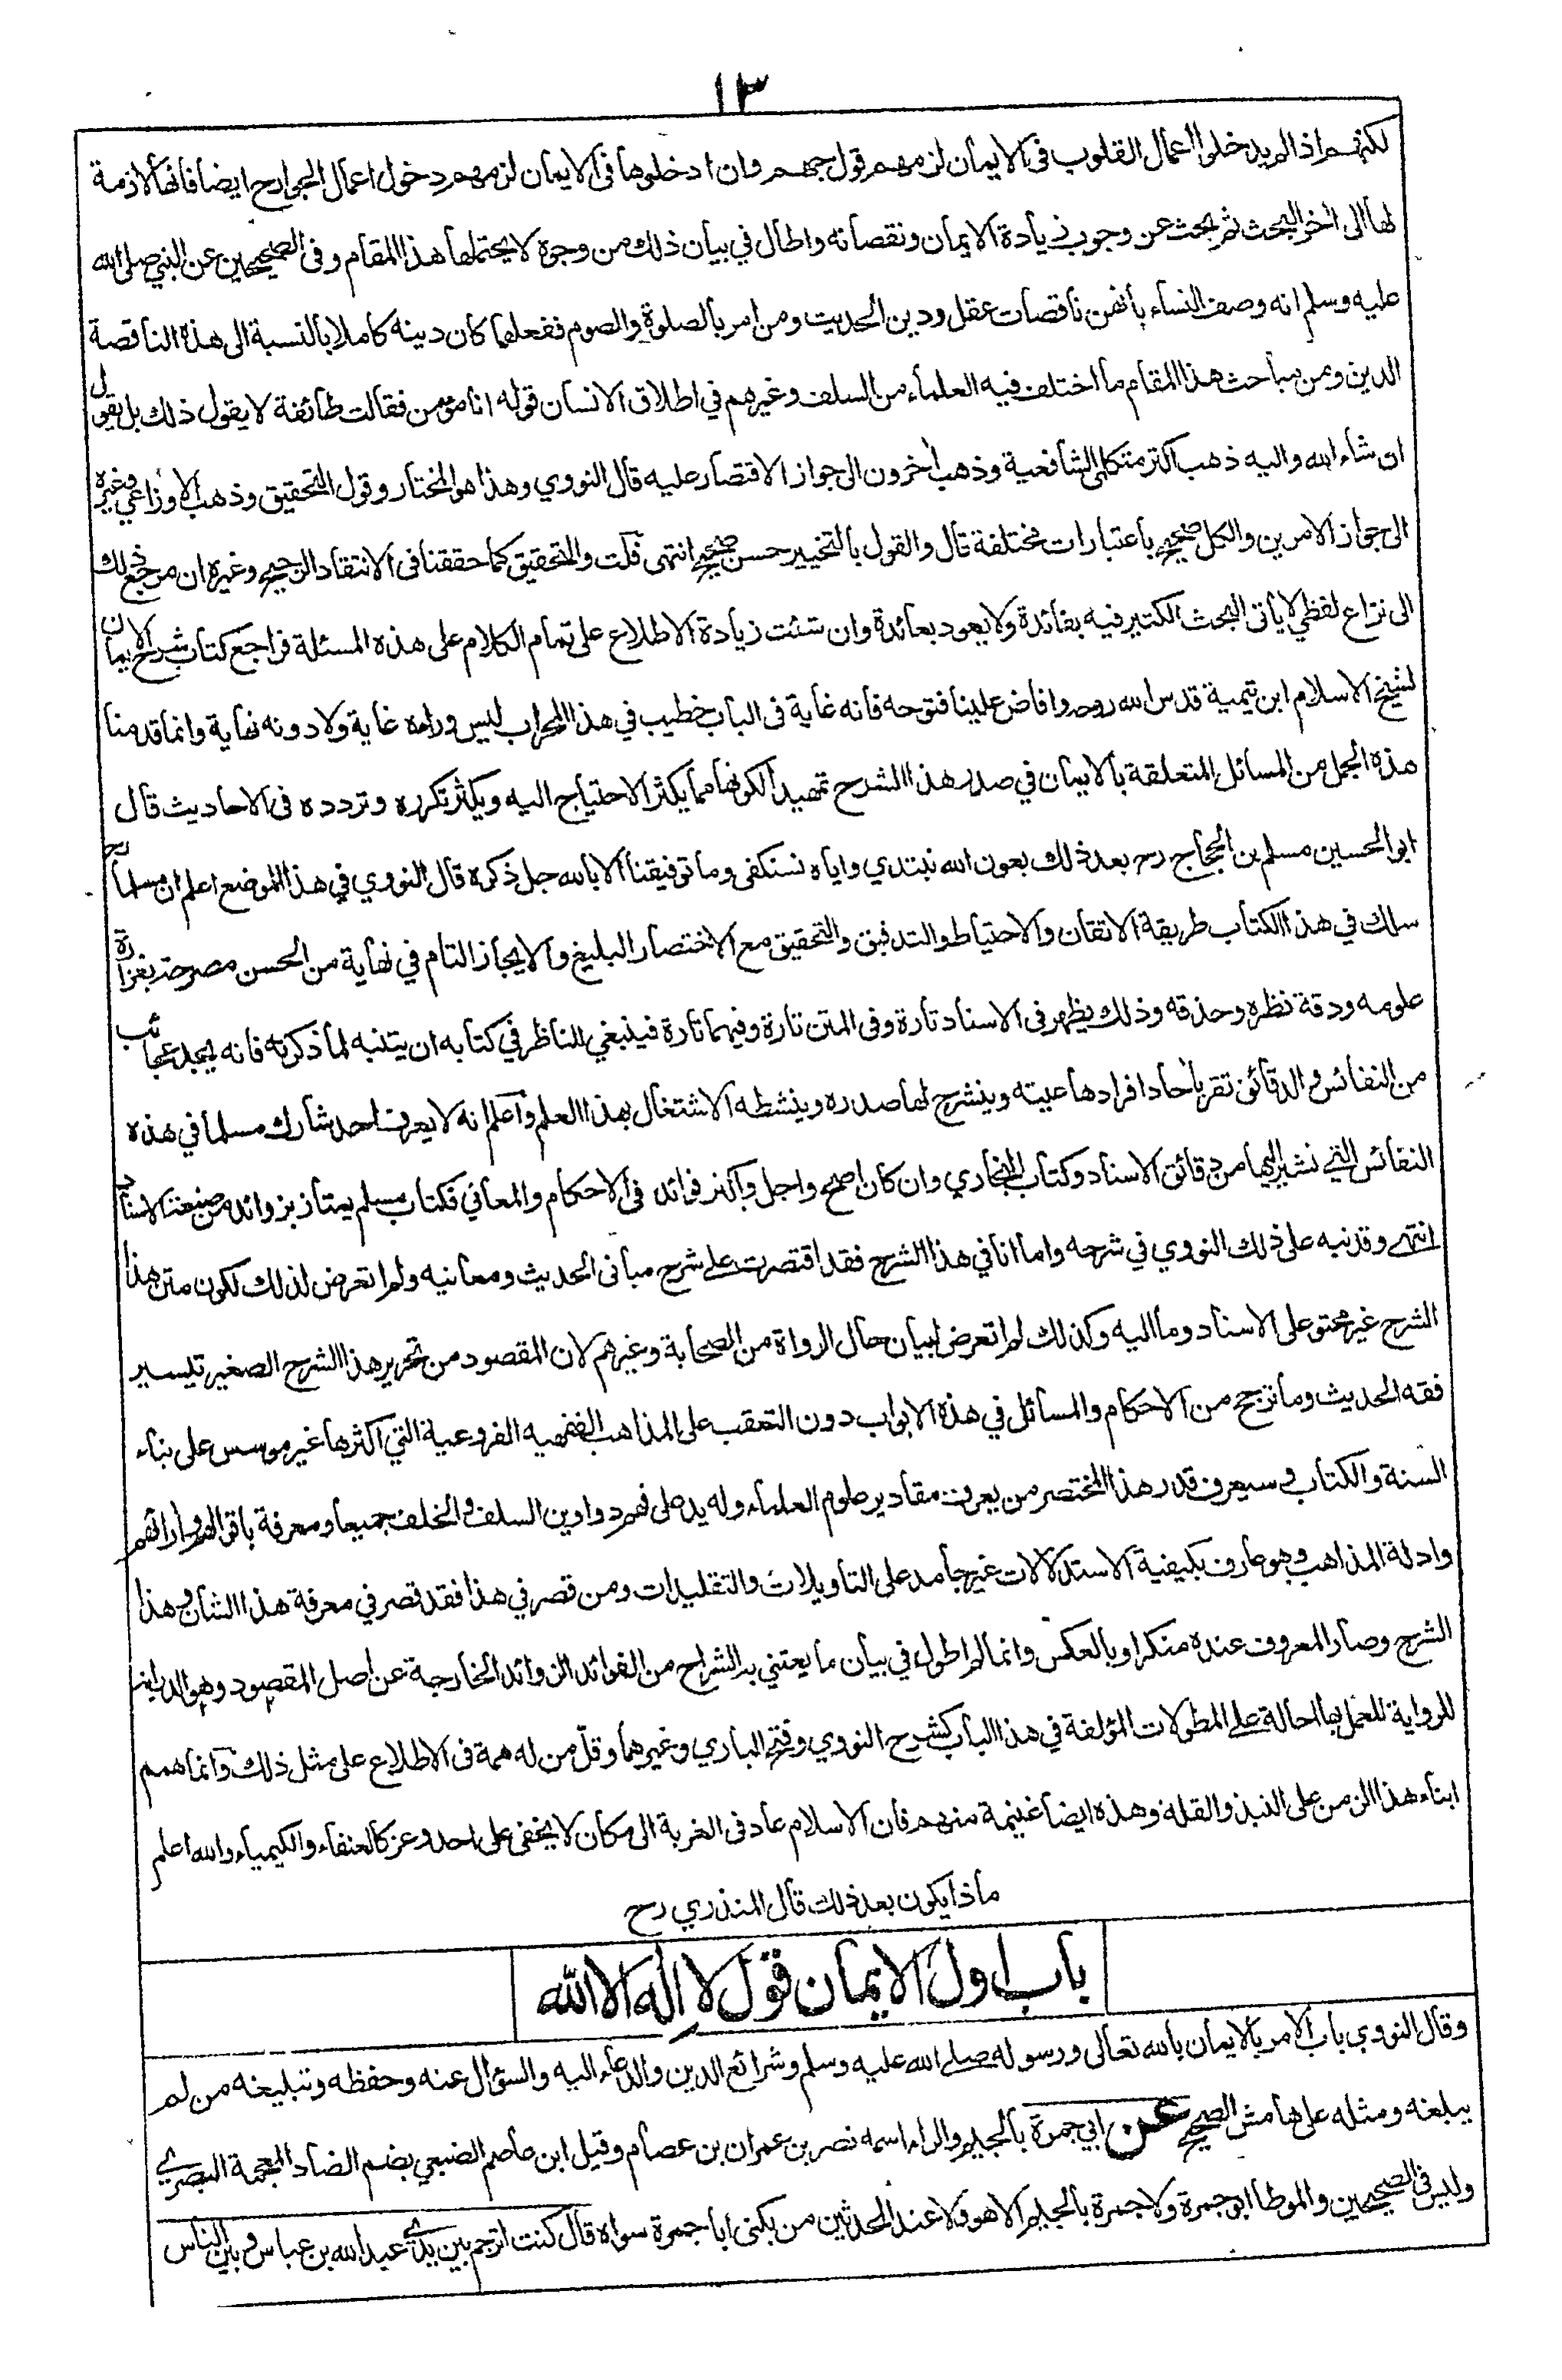 ١٣
لكنهم اذا لم يدخلوا اعمال القلوب فى الايمان لزمهم قول جهم وان ادخلوها فى الايمان لزمهم دخول اعمال الجوارح ايضا فانها لازمة
لها الى اخر البحث ثم بحث عن وجوب زيادة الايمان ونقصانه واطال في بيان ذلك من وجوه لا يحتملها هذا المقام وفى الصحيحين عن النبي صلى الله
عليه وسلم انه وصف النساء بأنهن ناقصات عقل ودين الحديث ومن امر بالصلوة والصوم ففعلهما كان دينه كاملا بالنسبة الى هذه الناقصة
الدين ومن مباحث هذا المقام ما اختلف فيه العلماء من السلف وغيرهم في اطلاق الانسان قوله انا مؤمن فقالت طائفة لا يقول ذلك بل يقول
ان شاء الله واليه ذهب اكثر متكلمي الشافعية وذهب اخرون الى جواز الاقتصار عليه قال النووي وهذا هو المختار وقول التحقيق وذهب الاوزاعي وغيره
الى جواز الامرين والكل صحيح باعتبارات مختلفة قال والقول بالتخيير حسن صحيح انتهى قلت والتحقيق كما حققنا فى الانتقاد الرجيح وغيره ان مرجع ذلك
الى نزاع لفظي لا يأتى البحث الكثير فيه بفائدة ولا يعود بعائدة وان شئت زيادة الاطلاع على تمام الكلام على هذه المسئلة فراجع كتاب شرح الايمان
لشيخ الاسلام ابن تيمية قدس الله روحه وافاض علينا فتوحه فانه غاية فى الباب خطيب في هذا المحراب ليس وراءه غاية ولا دونه نهاية وانما قدمنا
هذه الجمل من المسائل المتعلقة بالايمان في صدر هذا الشرح تمهيدا لكونها مما يكثر الاحتياج اليه ويكثر تكرره وتردده فى الاحاديث قال
ابو الحسين مسلم بن الحجاج رح بعد ذلك بعون الله نبتدي واياه نستكفى وما توفيقنا الا بالله جل ذكره قال النووي في هذا الموضع اعلم ان مسلما رح
سلك في هذا الكتاب طريقة الاتقان والاحتياط والتدقيق والتحقيق مع الاختصار البليغ والايجاز التام في نهاية من الحسن مصرحة بغزارة
علومه ودقة نظره وحذقه وذلك يظهر فى الاسناد تارة وفى المتن تارة وفيهما تارة فينبغي للناظر في كتابه ان يتنبه لما ذكرته فانه يجد عجائب
من النفائس والدقائق تقر بأحاد افرادها عينه وينشرح لها صدره وينشطه الاشتغال بهذا العلم واعلم انه لا يعرف احد شارك مسلما في هذه
النفائس التي نشير اليها من دقائق الاسناد وكتاب البخاري وان كان اصح واجل واكثر فوائد فى الاحكام والمعاني فكتاب مسلم يمتاز بزوائد من صنيعة الاسناد
انتهى وقد نبه على ذلك النووي في شرحه واما انا في هذا الشرح فقد اقتصرت على شرح مبانى الحديث ومعانيه ولم اتعرض لذلك لكون متن هذا
الشرح غير محتو على الاسناد وما اليه وكذلك لم اتعرض لبيان حال الرواة من الصحابة وغيرهم لان المقصود من تحرير هذا الشرح الصغير تيسير
فقه الحديث وما ترجح من الاحكام والمسائل في هذه الابواب دون التعقب على المذاهب الفقهيه الفروعية التي اكثرها غير موسس على بناء
السنة والكتاب وسيعرف قدر هذا المختصر من يعرف مقادير علوم العلماء وله يد طولى فهم دواوين السلف والخلف جميعا ومعرفة باقوالهم وارائهم
وادلة المذاهب وهو عارف بكيفية الاستدلالات غير جامد على التأويلات والتقليدات ومن قصر في هذا فقد قصر في معرفة هذا الشان وهذا
الشرح وصار المعروف عنده منكرا وبالعكس وانما لم اطول في بيان ما يعتني به الشراح من الفوائد الزوائد الخارجة عن اصل المقصود وهو الدراية
للرواية للعمل بها احالة على المطولات المؤلفة في هذا الباب كشرح النووي وفتح الباري وغيرهما وقل من له همة فى الاطلاع على مثل ذلك وانما همم
ابناء هذا الزمن على النبذ والقلة وهذه ايضا غنيمة منهم فان الاسلام عاد فى الغربة الى مكان لا يخفى على احد وعز كالعنقاء والكيمياء والله اعلم
ماذا يكون بعد ذلك قال المنذري رح
باب اول الايمان قول لا اله الا الله
وقال النووي باب الامر بالايمان بالله تعالى ورسوله صلى الله عليه وسلم وشرائع الدين والدعاء اليه والسؤال عنه وحفظه وتبليغه من لم
يبلغه ومثله على هامش الصحيح عن ابي جمرة بالجيم والراء اسمه نصر بن عمران بن عصام وقيل ابن عاصم الضبعي بضم الضاد المعجمة البصري
وليس فى الصحيحين والموطا ابو جمرة ولا جمرة بالجيم الا هو ولا عند المحدثين من يكنى ابا جمرة سواه قال كنت اترجم بين يدي عبد الله بن عباس وبين الناس